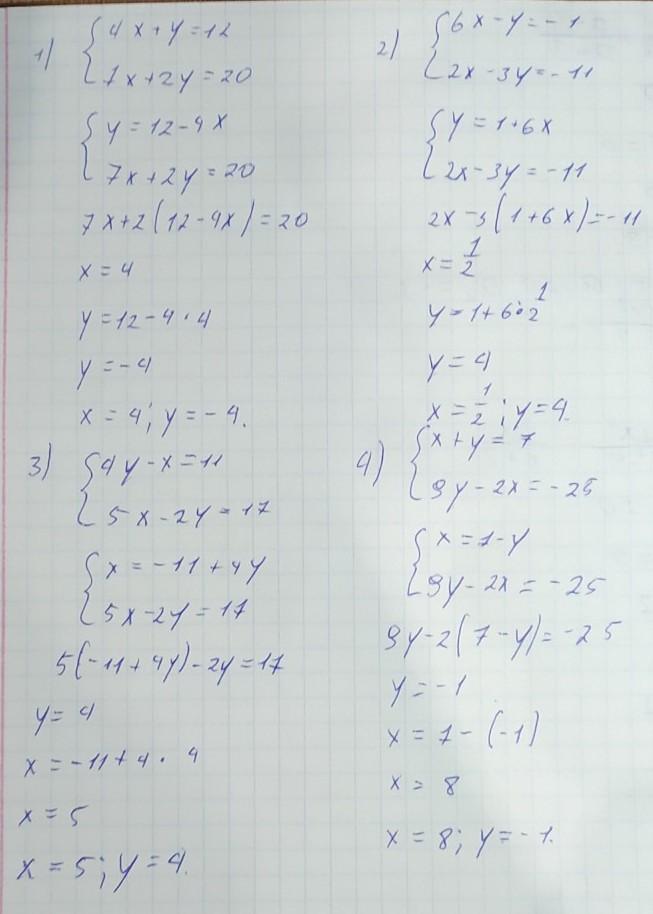 1) { 4x + y = 12
7x + 2y = 20
{ y = 12 - 4x
7x + 2y = 20
7x + 2(12 - 4x) = 20
x = 4
y = 12 - 4 · 4
y = -4
x = 4; y = -4.
2) { 6x - y = -1
2x - 3y = -11
{ y = 1 + 6x
2x - 3y = -11
2x - 3(1 + 6x) = -11
x = 1/2
y = 1 + 6 · 1/2
y = 4
x = 1/2; y = 4.
3) { 4y - x = 11
5x - 2y = 17
{ x = -11 + 4y
5x - 2y = 17
5(-11 + 4y) - 2y = 17
y = 4
x = -11 + 4 · 4
x = 5
x = 5; y = 4.
4) { x + y = 7
9y - 2x = -25
{ x = 7 - y
9y - 2x = -25
9y - 2(7 - y) = -25
y = -1
x = 7 - (-1)
x = 8
x = 8; y = -1.